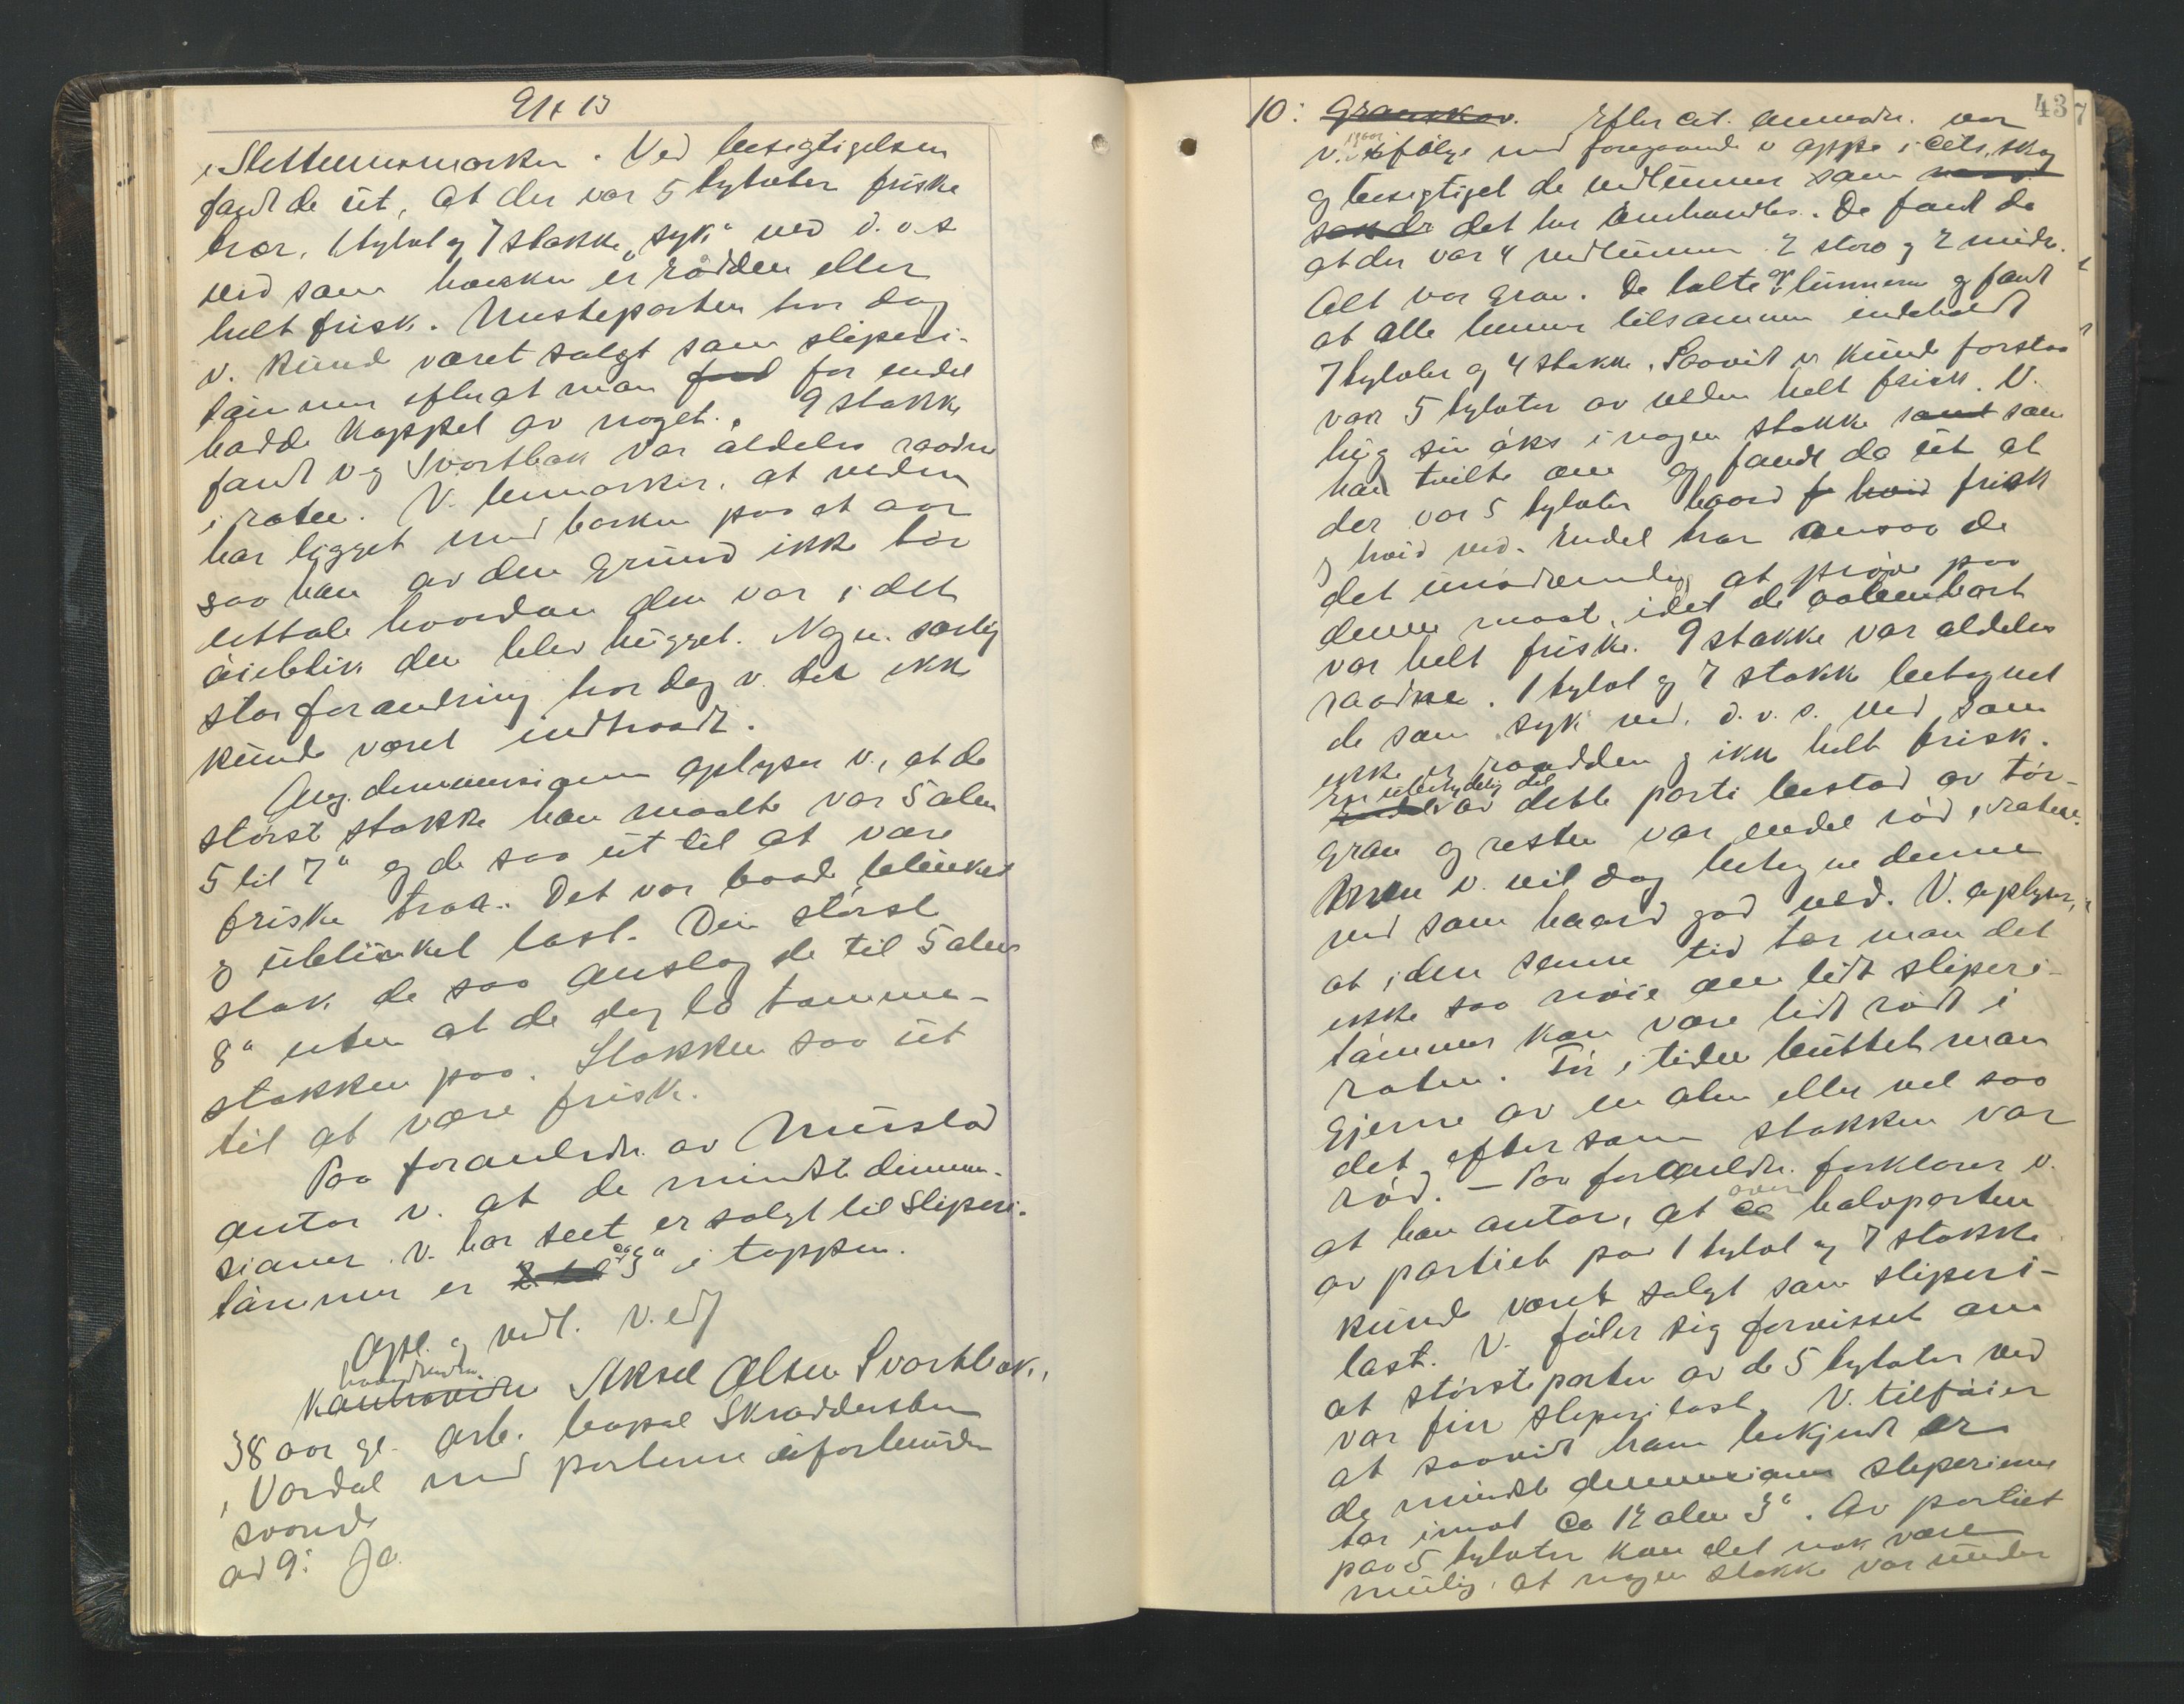 i Slettumsmarken. Ved besigtigelsen
fandt de ut, at der var 5 tylvter friske
trær, 1 tylvt og 7 stokke "syk" ved d.v.s
ved som hverken er raadden eller
helt frisk. Mesteparten tror dog
v. kunde været solgt som sliperi-
tømmer efterat man for endel
hadde kappet av noget. 9 stokke
fandt v og Svortbak var aldeles raadne
i roten. V. bemerker, at veden
har ligget med barken paa et aar
saa han av den grund ikke tør
uttale hvordan den var i det
øieblik den blev hugget. Nogen særlig
stor forandring tror dog v. det ikke
kunde været indtraadt.
Ang. dimensionen oplyser v., at de
største stokke han maalte var 5 alen
5 til 7" og de saa ut til at være
friske træer. Det var baade blinket
og ublinket last. Den største
stok de saa anslog de til 5 alen
8" uten at de dog la tomme-
stokken paa. Stokken saa ut
til at være frisk.
Paa foranledn. av Mustad
antar v. at de mindste dimen-
sioner v. har seet er solgt til sliperi-
tømmer er ca 3" i toppen.
Opl. og vedt. V. edf
Aksel Olsen Svortbak,
38 aar gl. arb. bopæl Skræddersten
i Vardal med parterne uforbunden
svorende
ad 9: Ja.
10: Granskov. Efter cit. anmodn. var
v. ifølge med foregaaende v oppe i cits. skog
og besigtiget de vedlunner som
det her omhandles. De fandt da
at der var 4 vedlunner 2 store og 2 mindr.
Alt var gran. De talte op lunnerne og fandt
at alle lunner tilsammen indeholdt
7 tylvter og 4 stokke. Saavidt v. kunde forstaa
var 5 tylvter av veden helt frisk. V.
hug sin øks i nogen stokke som
han tvilte om og fandt da ut at
der var 5 tylvter haard frisk
og hvid ved. Endel trær ansaa de
det unødvendig at prøve paa
denne maat, idet de aabenbart
var helt friske. 9 stokke var aldeles
raadne. 1 tylvt og 7 stokk betegnet
de som "syk" ved, d.v.s. ved som
ikke er raadden og ikke helt frisk.
En ubetydelig del av dette parti bestod av tør-
gran og resten var endel rød i roten.
Men v. vil dog betegne denne
ved som haard god ved. V. oplyser,
at i den senere tid tar man det
ikke saa nøie om lidt sliperi-
tømmer kan være lidt rødt i
roten. Før i tiden buttet man
gjerne av en alen eller vel saa
det, eftersom stokken var
rød. – Paa foranledn. forklarer v.
at han antar, at over halvparten
av partiet paa 1 tylvt og 7 stokke
kunde været solgt som sliperi-
last. V. føler sig forvisset om
at størsteparten av de 5 tylvter ved
var fin sliperilast. V. tilføier
at saavidt ham bekjendt er
de mindste dimensioner sliperierne
tar imot ca 12 alen 3". Av partiet
paa 5 tylvter kan det nok være
mulig, at nogen stokke var under